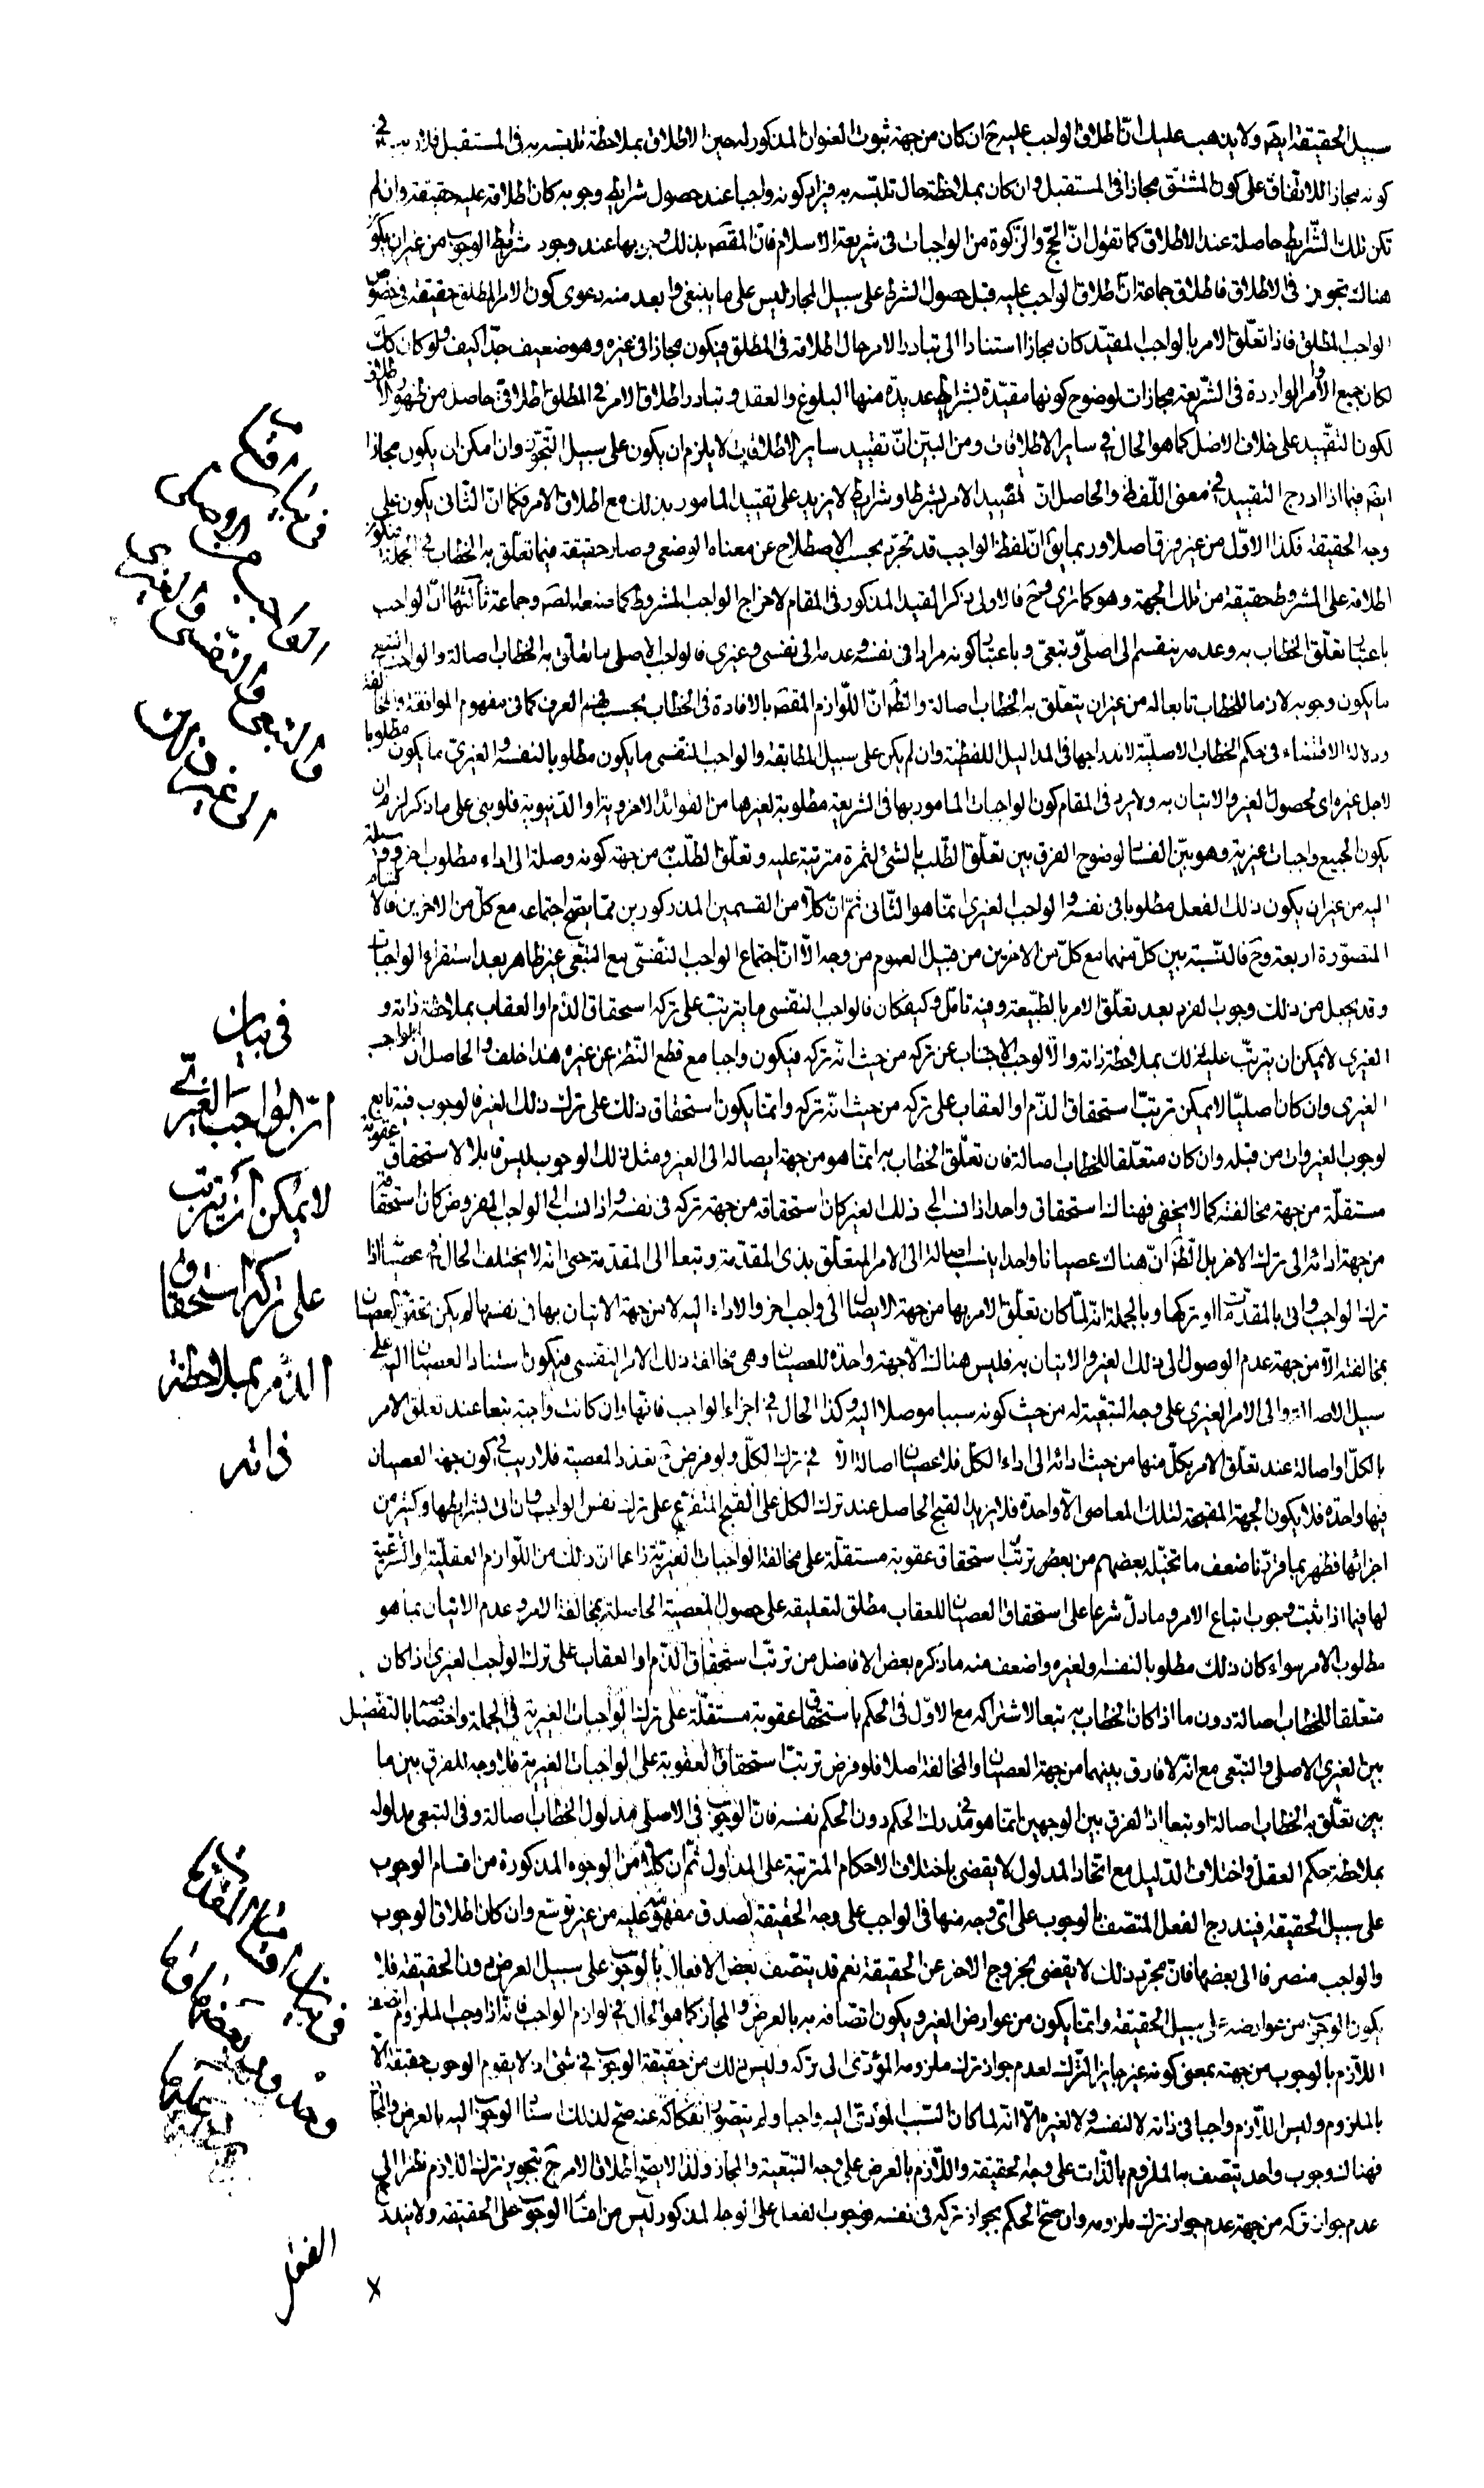 سبيل الحقيقة ايضا ولا يذهب عليك ان اطلاق الواجب عليه ح ان كان من جهة ثبوت العنوان المذكور له حين الاطلاق بملاحظة تلبسه به فى المستقبل فلا ريب فى
كونه مجازا للاتفاق على كون المشتق مجازا فى المستقبل وان كان بملاحظة حال تلبسه به فيراد كونه واجبا عند حصول شرايط وجوبه كان اطلاقه عليه حقيقة وان لم
تكن تلك الشرايط حاصلة عند الاطلاق كما تقول ان الحج والزكوة من الواجبات فى شريعة الاسلام فان المقصود بذلك وجوبها عند وجود شرايط الوجوب من غير ان يكون
هناك تجوز فى الاطلاق فاطلاق جماعة ان اطلاق الواجب عليه قبل حصول الشرط على سبيل المجاز ليس على ما ينبغى وابعد منه دعوى كون الامر المطلق حقيقة فى خصوص
الواجب المطلق فاذا تعلق الامر بالواجب المقيد كان مجازا استنادا الى تبادر الامر حال اطلاقه فى المطلق فيكون مجازا فى غيره وهو ضعيف جدا كيف ولو كان كك
لكان جميع الاوامر الواردة فى الشريعة مجازات لوضوح كونها مقيدة بشرايط عديدة منها البلوغ والعقل وتبادر اطلاق الامر فى المطلق اطلاقى حاصل من ظهور الاطلاق
لكون التقييد على خلاف الاصل كما هو الحال فى ساير الاطلاقات ومن البين ان تقييد ساير الاطلاقات لا يلزم ان يكون على سبيل التجوز وان امكن ان يكون مجازا
ايضا فيما اذا ادرج التقييد فى معنى اللفظ والحاصل ان تقييد الامر بشرط او شرايط لا يزيد على تقييد المامور به بذلك مع اطلاق الامر فكما ان الثانى يكون على
وجه الحقيقة فكذا الاول من غير فرق اصلا وربما يق ان لفظ الواجب قد تجرد بحسب الاصطلاح عن معناه الوضعى وصار حقيقة فيما تعلق به الخطاب فى الجملة فيكون
اطلاقه على المشروط حقيقة من تلك الجهة وهو كما ترى وح فالاولى ذكر القيد المذكور فى المقام لاخراج الواجب المشروط كما صنعه المصنف وجماعة ثالثها ان الواجب
باعتبار تعلق الخطاب به وعدمه ينقسم الى اصلى وتبعى وباعتبار كونه مرادا فى نفسه وعدمه الى نفسى وغيرى فالواجب الاصلى ما تعلق به الخطاب اصالة والواجب التبعى
ما يكون وجوبه لازما للخطاب تابعا له من غير ان يتعلق به الخطاب اصالة والظ ان اللوازم المقصودة بالافادة فى الخطاب بحسب فهم العرف كما فى مفهوم الموافقة والمخالفة
ودلالة الاقتضاء فى حكم الخطاب الاصلية لاندراجها فى المداليل اللفظية وان لم يكن على سبيل المطابقة والواجب النفسى ما يكون مطلوبا لنفسه والغيرى ما يكون مطلوبا
لاجل غيره اى لحصول الغير والاتيان به ولا يرد فى المقام كون الواجبات المامور بها فى الشريعة مطلوبة لغيرها من الفوائد الاخروية او الدنيوية فلو بنى على ما ذكر لزم ان
يكون الجميع واجبات غيرية وهو بين الفساد لوضوح الفرق بين تعلق الطلب بالشئ لثمرة مترتبة عليه وتعلق الطلب به من جهة كونه وصلة الى اداء مطلوب اخر ووسيلة
اليه من غير ان يكون ذلك الفعل مطلوبا فى نفسه والواجب الغيرى انما هو الثانى ثم ان كلا من القسمين المذكورين مما يصح اجتماعه مع كل من الاخرين فالاقسام
المتصورة اربعة وح فالنسبة بين كل منهما مع كل من الاخرين من قبيل العموم من وجه الا ان اجتماع الواجب النفسى مع التبعى غير ظاهر بعد استقراء الواجبات
وقد يجعل من ذلك وجوب الفرد بعد تعلق الامر بالطبيعة وفيه تامل وكيف كان فالواجب النفسى ما يترتب على تركه استحقاق الذم او العقاب بملاحظة ذاته و
الغيرى لا يمكن ان يترتب عليه ذلك بملاحظة ذاته والا لوجب الاجتناب عن تركه من حيث انه تركه فيكون واجبا مع قطع النظر عن غيره هذا خلف والحاصل ان الواجب
الغيرى وان كان اصليا لا يمكن ترتب استحقاق الذم او العقاب على تركه من حيث انه تركه وانما يكون استحقاق ذلك على ترك ذلك الغير فالوجوب فيه تابع
لوجوب الغير وات من قبله وان كان متعلقا للخطاب اصالة فان تعلق الخطاب به انما هو من جهة ايصاله الى الغير ومثل ذلك الوجوب ليس قابلا لاستحقاق عقوبة
مستقلة من جهة مخالفته كما لا يخفى فهناك استحقاق واحد اذا نسب الى ذلك الغير كان استحقاقه من جهة تركه فى نفسه واذا نسب الى الواجب المفروض كان استحقاقه
من جهة ادائه الى ترك الاخر بل الظ ان هناك عصيانا واحدا ينسب اصالة الى الامر المتعلق بذى المقدمة وتبعا الى المقدمة حتى انه لا يختلف الحال فى عصيانه اذا
ترك الواجب واتى بالمقدمات او تركها وبالجملة انه لما كان تعلق الامر بها من جهة الايصال الى واجب اخر والاداء اليه لا من جهة الاتيان بها فى نفسها لم يكن تحقق العصيان
بمخالفته الا من جهة عدم الوصول الى ذلك الغير والاتيان به فليس هناك الا جهة واحدة للعصيان وهى مخالفة ذلك الامر النفسى فيكون استناد العصيان اليه على
سبيل الاصالة والى الامر الغيرى على وجه التبعية له من حيث كونه سببا موصلا اليه وكذا الحال فى اجزاء الواجب فانها وان كانت واجبة تبعا عند تعلق الامر
بالكل او اصالة عند تعلق الامر بكل منها من حيث ادائه الى اداء الكل فلا عصيان اصالة الا فى ترك الكل ولو فرض ح تعدد المعصية فلا ريب فى كون جهة العصيان
فيها واحدة فلا يكون الجهة المقبحة لتلك المعاصى الا واحدة فلا يزيد القبح الحاصل عند ترك الكل على القبح المتفرع على ترك نفس الواجب وان اتى بشرايطها وكثير من
اجزائها فظهر بما قررنا ضعف ما تخيله بعضهم من بعض ترتب استحقاق عقوبة مستقلة على مخالفة الواجبات الغيرية زاعما ان ذلك من اللوازم العقلية او الشرعية
لها فيما اذا ثبت وجوب اتباع الامر وما دل شرعا على استحقاق العصيان للعقاب مطلق لتعليقه على حصول المعصية الحاصلة بمخالفة الامر وعدم الاتيان بما هو
مطلوب الامر سواء كان ذلك مطلوبا لنفسه او لغيره واضعف منه ما ذكره بعض الافاضل من ترتب استحقاق الذم او العقاب على ترك الواجب الغيرى اذا كان
متعلقا للخطاب اصالة دون ما اذا كان الخطاب به تبعا لاشتراكه مع الاول فى الحكم باستحقاق عقوبة مستقلة على ترك الواجبات الغيرية فى الجملة واختصاصه بالتفصيل
بين الغيرى الاصلى والتبعى مع انه لا فارق بينهما من جهة العصيان والمخالفة اصلا فلو فرض ترتب استحقاق العقوبة على الواجبات الغيرية فلا وجه للفرق بين ما
بين تعلق به الخطاب اصالة او تبعا اذ الفرق بين الوجهين انما هو فى مدرك الحكم دون الحكم نفسه فان الوجوب فى الاصلى مدلول الخطاب اصالة وفى التبعى مدلوله
بملاحظة حكم العقل واختلاف الدليل مع اتحاد المدلول لا يقضى باختلاف الاحكام المترتبة على المدلول ثم ان كلا من الوجوه المذكورة من اقسام الوجوب
على سبيل الحقيقة فيندرج الفعل المتصف بالوجوب على اى وجه منها فى الواجب على وجه الحقيقة لصدق مفهومه عليه من غير توسع وان كان اطلاق الوجوب
والواجب منصرفا الى بعضها فان مجرد ذلك لا يقضى بخروج الاخر عن الحقيقة نعم قد يتصف بعض الافعال بالوجوب على سبيل العرض دون الحقيقة فلا
يكون الوجوب من عوارضه على سبيل الحقيقة وانما يكون من عوارض الغير ويكون اتصافه به بالعرض والمجاز كما هو الحال فى لوازم الواجب فانه اذا وجب الملزوم اتصف
اللازم بالوجوب من جهته بمعنى كونه غير جايز الترك لعدم جواز ترك ملزومه المؤدى الى تركه وليس ذلك من حقيقة الوجوب فى شئ اذ لا يقوم الوجوب حقيقة الا
بالملزوم وليس اللازم واجبا فى ذاته لا لنفسه ولا لغيره الا انه لما كان السبب المؤدى اليه واجبا ولم يتصور انفكاكه عنه صح لذلك اسناد الوجوب اليه بالعرض والمجاز
فهناك وجوب واحد يتصف به الملزوم بالذات على وجه الحقيقة واللازم بالعرض على وجه التبعية والمجاز ولذا لا يصح اطلاق الامر ح بتجويز ترك اللازم نظرا الى
عدم جواز تركه من جهة عدم جواز ترك ملزومه وان صح الحكم بجواز تركه فى نفسه فوجوب الفعل على الوجه المذكور ليس من اقسام الوجوب على الحقيقة ولا يندرج
فى بيان اقسام
الواجب من الاصلى
والتبعى والنفسى والغيرى
الى غير ذلك
فى بيان
ان الواجب الغيرى
لا يمكن ان يترتب
على تركه استحقاق
الذم بملاحظة
ذاته
الفعل